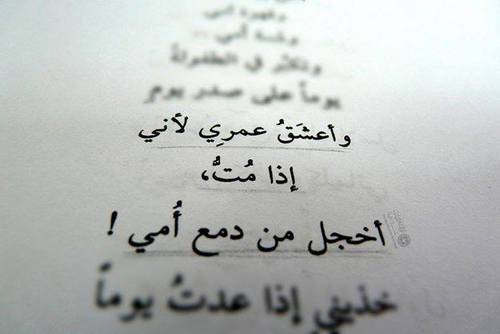 وقهوة أمي
ولمسة أمي
وتكبر في الطفولة
يوماً على صدر يوم
وأعشَقُ عمرِي لأني
إذا مُتُّ،
أخجل من دمع أُمي !
خذيني إذا عدتُ يوماً